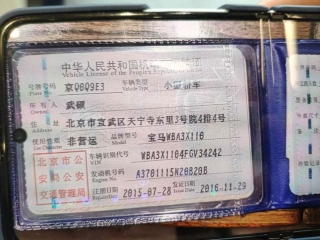 中华人民共和国机
Vehicle License of the People's Republic
号牌号码 Plate No. 京Q6Q9E3 车辆类型 Vehicle Type 小型轿车
所有人 Owner 武硕
住址 北京市宣武区天宁寺东里3号院4排4号
使用性质 Use Character 非营运 品牌型号 Model 宝马WBA3X110
北京市公 车辆识别代号 VIN WBA3X1104FGV34242
安局公安 发动机号码 Engine No. A3701115N20B20B
交通管理局 注册日期 Register Date 2015-07-28 发证日期 Issue Date 2016-11-29